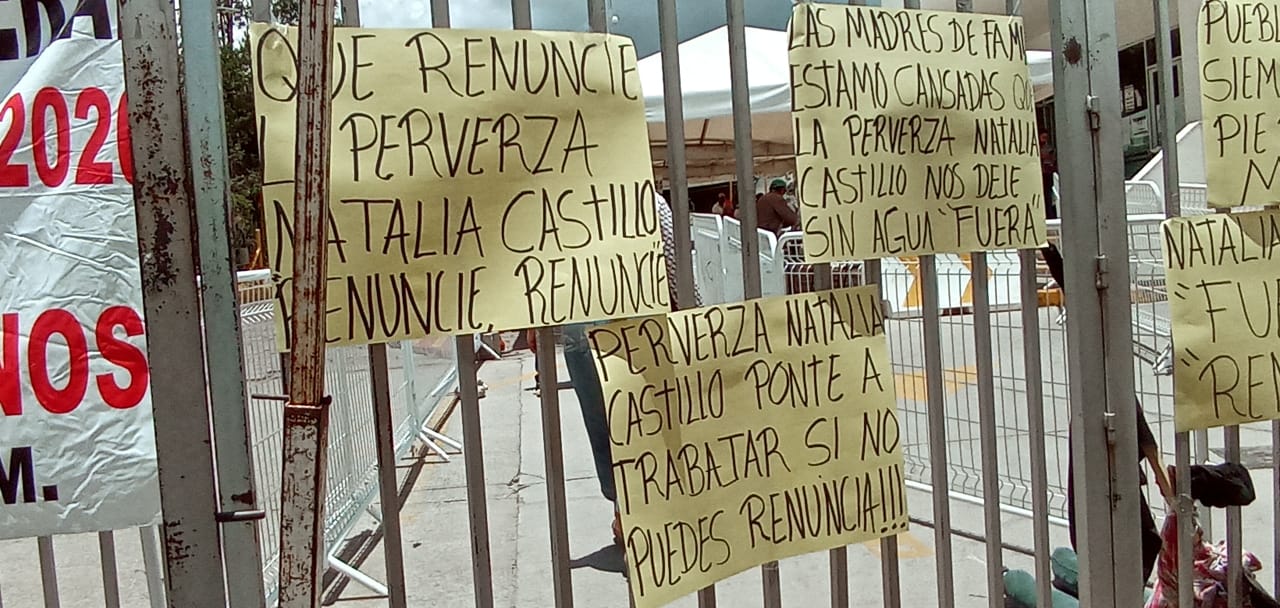 2020
NOS
M.
QUE RENUNCIE
LA PERVERZA
NATALIA CASTILLO
RENUNCIE, RENUNCIE
LAS MADRES DE FAMI
ESTAMO CANSADAS QUE
LA PERVERZA NATALIA
CASTILLO NOS DEJE
SIN AGUA "FUERA"
PERVERZA NATALIA
CASTILLO PONTE A
TRABAJAR SI NO
PUEDES RENUNCIA!!!
PUEBL
SIEM
PIE
NATALIA
"FU
"REN